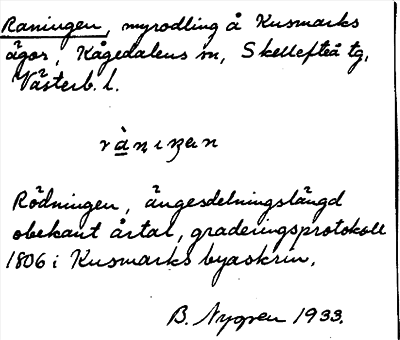 Raningen, myrodling å Kusmarks
ägor, Kågedalens sn, Skellefteå tg,
Västerb. l.
rànıŋen
Rödningen, ängesdelningslängd
obekant årtal, graderingsprotokoll
1806 i Kusmarks byaskrin.
B. Nygren 1933.